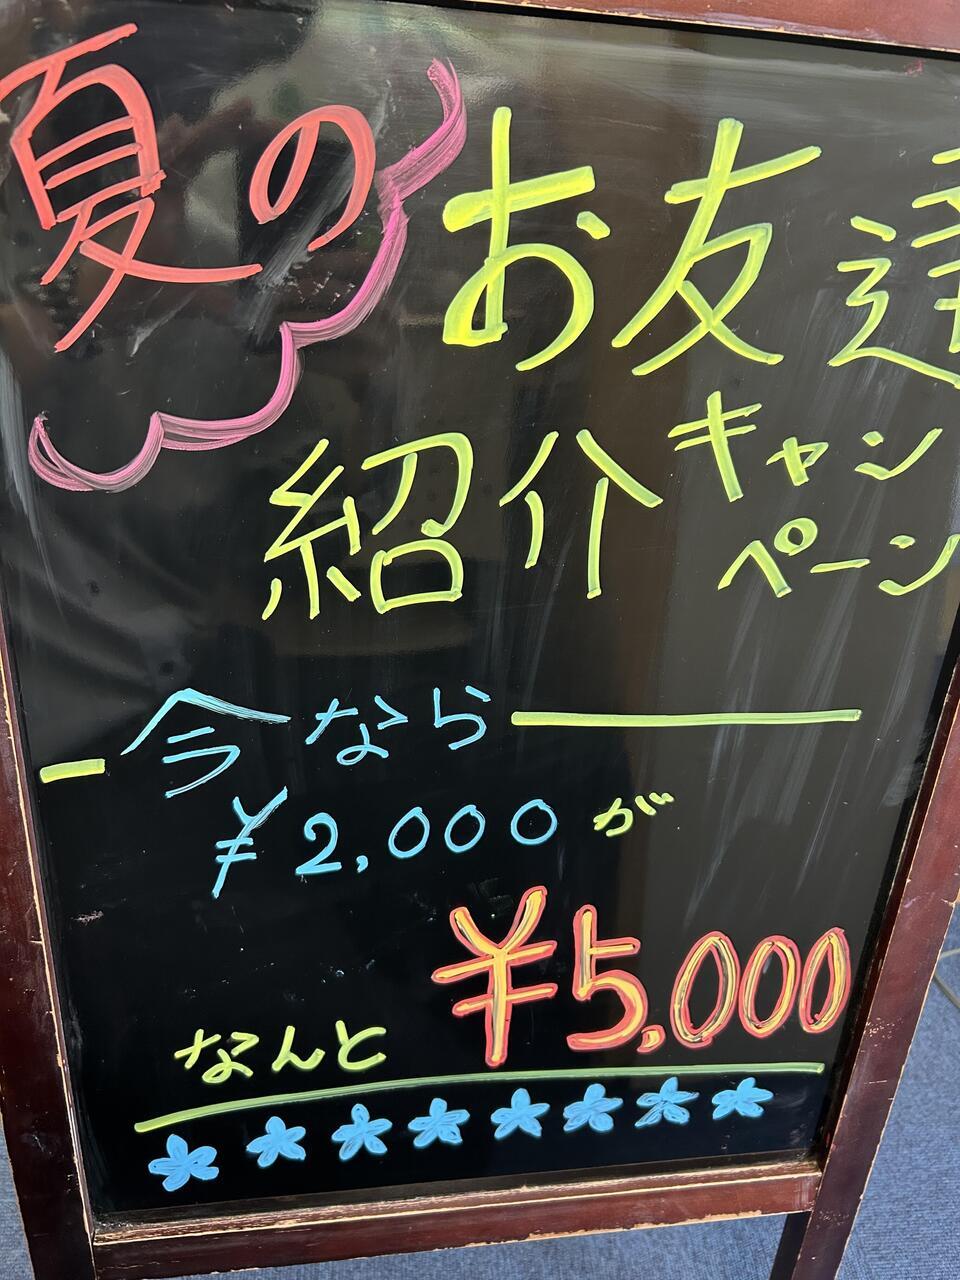 夏の
お友達
紹介キャンペーン
今なら
¥2,000が
なんと ¥5,000